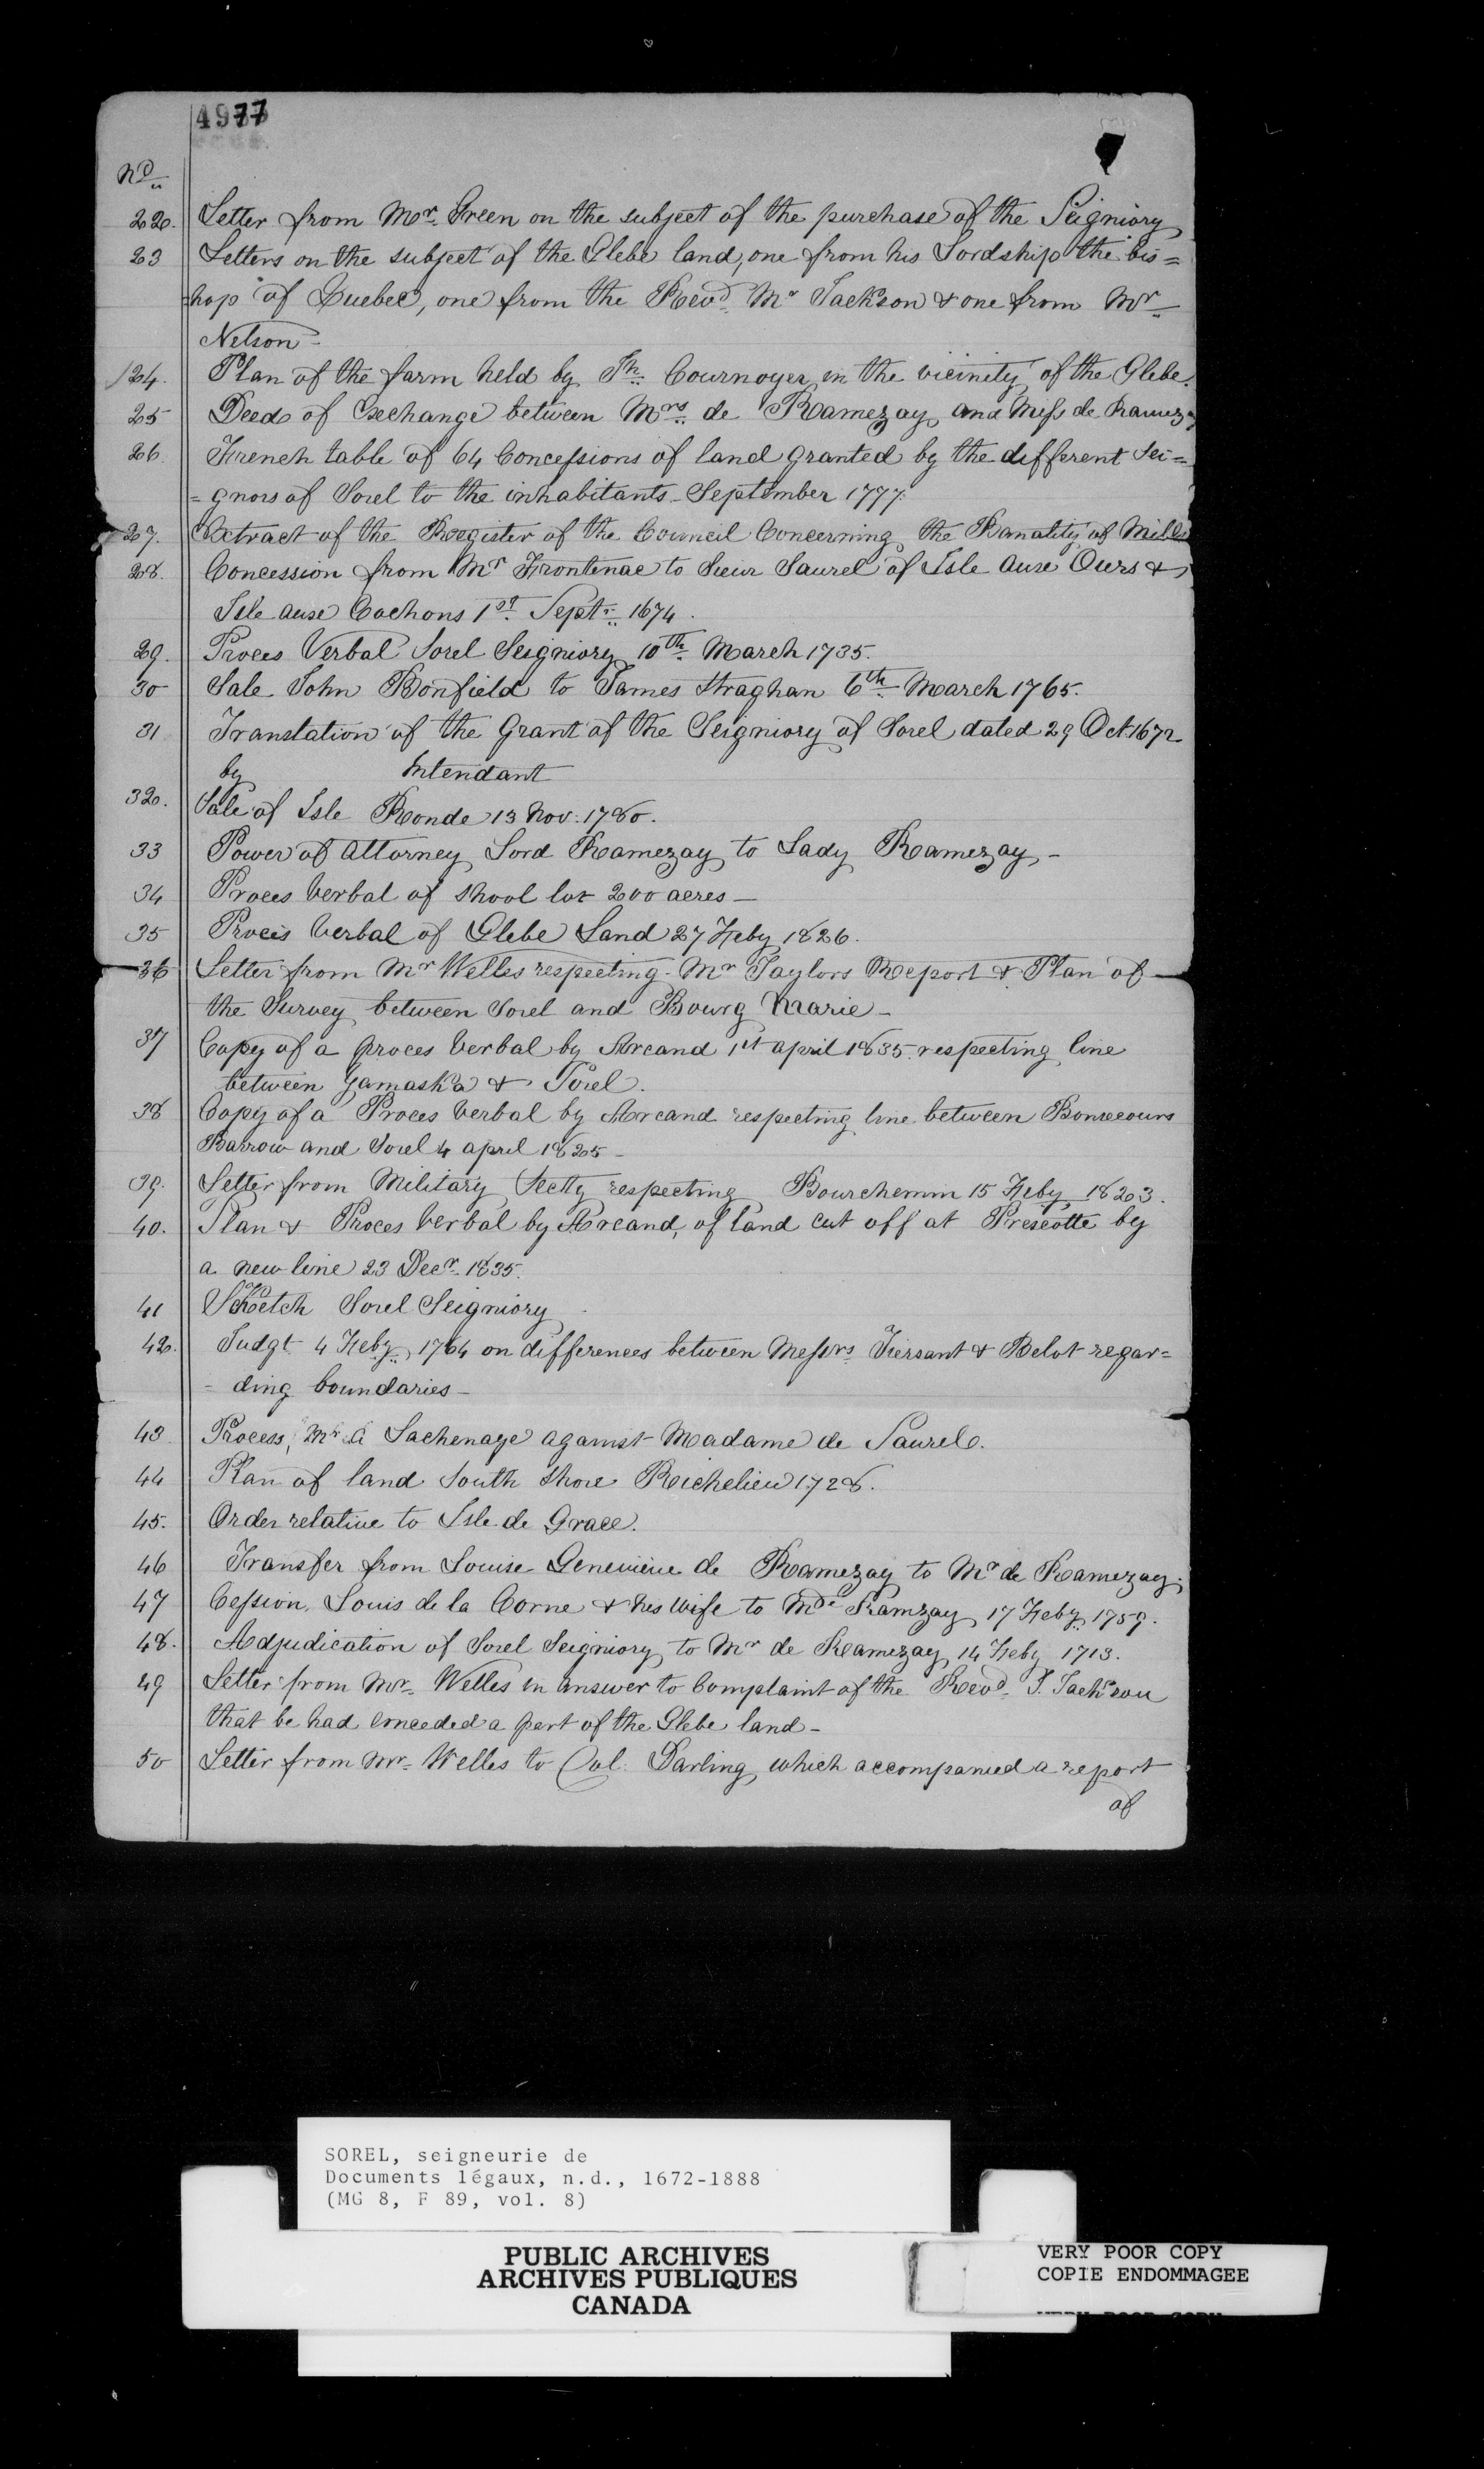 4977
No
22. Letter from Mr. Green on the subject of the purchase of the Seigniory
23 Letters on the subject of the Glebe land, one from his Lordship the bis=
=hop of Quebec, one from the Revd. Mr Jackson & one from Mr
Nelson -
24. Plan of the farm held by Jh. Cournoyer in the vicinity of the Glebe.
25 Deed of Exchange between Mrs. de Ramezay and Miss de Ramezay
26. French table of 64 Concessions of land granted by the different Sei=
=gnors of Sorel to the inhabitants - September 1777.
27. Extract of the Register of the Council Concerning the Banality of Mills
28. Concession from Mr Frontenac to Sieur Saurel of Isle Aux Ours &
Isle aux Cochons 1st. Sept. 1674.
29. Proces Verbal Sorel Seigniory 10th. March 1735.
30 Sale John Bonfield to James Straghan 6th. March 1765.
31 Translation of the Grant of the Seigniory of Sorel dated 29 Oct 1672
by Intendant
32. Sale of Isle Ronde 13 Nov. 1780.
33 Power of Attorney Lord Ramezay to Lady Ramezay -
34 Proces Verbal of shool lot 200 acres -
35 Proces Verbal of Glebe Land 27 Feby 1826.
36 Letter from Mr Welles respecting Mr Taylors Report & Plan of
the Survey between Sorel and Bourg Marie -
37 Copy of a proces Verbal by Arcand 1st april 1835 respecting line
between Yamaska & Sorel.
38 Copy of a Proces Verbal by Arcand respecting line between Bonsecours
Barrow and Sorel 4 april 1825 -
39. Letter from Military Secty respecting Bourchemin 15 Feby 1823.
40. Plan & Proces Verbal by Arcand, of land cut off at Prescotte by
a new line 23 Decr. 1835.
41 Sketch Sorel Seigniory
42. Judgt 4 Feby. 1764 on differences between Messrs Fiersant & Belot regar=
=ding boundaries -
43 Process, Mr. A Lachenaye against Madame de Saurel.
44 Plan of land South Shore Richelieu 1728.
45. Order relative to Isle de Grace.
46 Transfer from Louise Genevieve de Ramezay to Mr de Ramezay.
47 Cession Louis de la Corne & his Wife to Mde Ramzay 17 Feby. 1759.
48. Adjudication of Sorel Seigniory to Mr de Ramezay 14 Feby 1713.
49 Letter from Mr. Welles in answer to Complaint of the Revd. J. Jackson
that he had conceded a part of the Glebe land -
50 Letter from Mr. Welles to Col. Darling which accompanied a report
of
SOREL, seigneurie de
Documents légaux, n.d., 1672-1888
(MG 8, F 89, vol. 8)
PUBLIC ARCHIVES
ARCHIVES PUBLIQUES
CANADA
VERY POOR COPY
COPIE ENDOMMAGEE
VERY POOR COPY